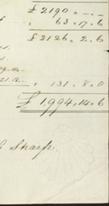 £ 2190 . - . -
63 . 17 . 6
£ 2126 . 2 . 6
131 . 8 . 0
£ 1994 . 14 . 6
Sharp.